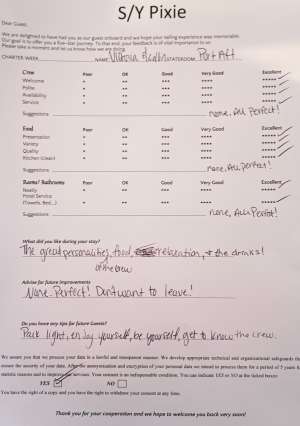 S/Y Pixie
Dear Guest,
We are delighted to have had you as our guest onboard and we hope your sailing experience was memorable.
Our goal is to offer you a five-star journey. To that end, your feedback is of vital importance to us.
Please take a moment and let us know how we are doing.
CHARTER WEEK NAME Victoria STATEROOM Port Aft
Crew Poor OK Good Very Good Excellent
Welcome * ** *** **** *****
Polite * ** *** **** *****
Availability * ** *** **** *****
Service * ** *** **** *****
Suggestions none, ALL Perfect!
Food Poor OK Good Very Good Excellent
Presentation * ** *** **** *****
Variety * ** *** **** *****
Quality * ** *** **** *****
Kitchen (clean) * ** *** **** *****
Suggestions none, ALL Perfect!
Rooms/ Bathrooms Poor OK Good Very Good Excellent
Neatly * ** *** **** *****
Hotel Service
(Towels, Bed...) * ** *** **** *****
Suggestions none, ALL Perfect!
What did you like during your stay?
The great personalities, food, relaxation, + the drinks!
of the crew
Advise for future improvements
None. Perfect! Dont want to leave!
Do you have any tips for future Guests?
Pack light, enjoy yourself, be yourself, get to know the crew.
We assure you that we process your data in a lawful and transparent manner. We develop appropriate technical and organisational safeguards
assure the security of your data. After the anonymization and encryption of your personal data we intend to process them for a period of 5 years
statistic reasons and to improve our services. Your consent is an indispensable condition. You can indicate YES or NO at the ticked boxes:
YES NO
You have the right of a copy and you have the right to withdraw your consent at any time.
Thank you for your cooperation and we hope to welcome you back very soon!